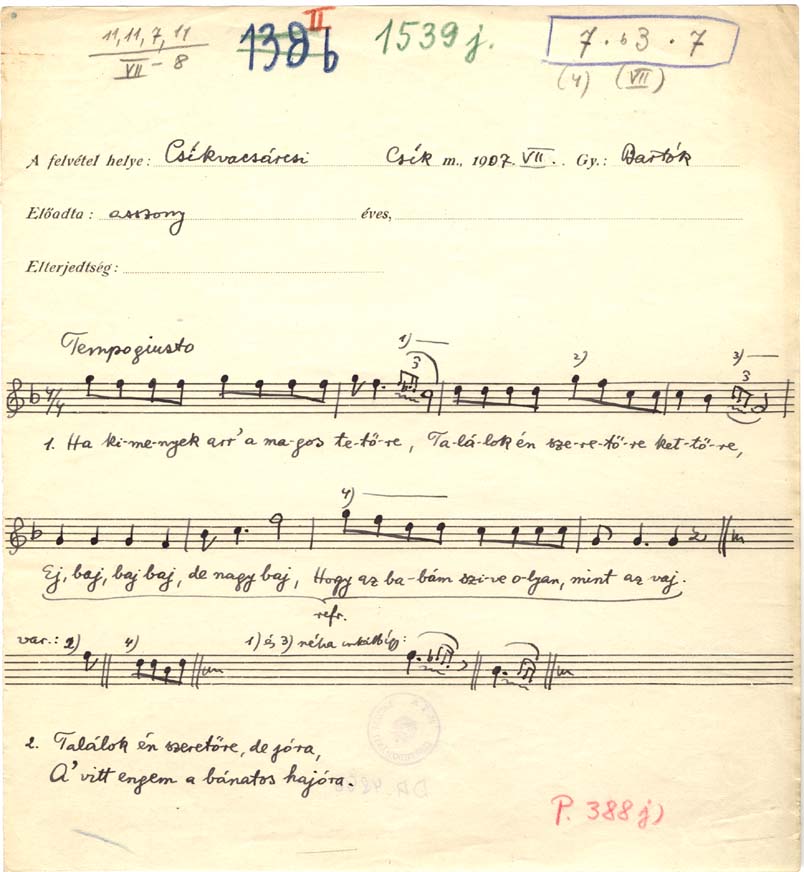 11, 11, 7, 11
VII - 8
138b
II
1539 j.
7 · b3 · 7
(4) (VII)
A felvétel helye: Csíkvacsárcsi Csík m., 1907. VII. Gy.: Bartók
Előadta: asszony éves,
Elterjedtség:
Tempogiusto
1) 2) 3)
3 3
4/4
1. Ha ki-me-nyek arr' a ma-gos te-tő-re, Ta-lá-lok én sze-re-tő-re ket-tő-re,
4)
Ej, baj, baj baj, de nagy baj, Hogy az ba-bám szi-ve o-lyan, mint az vaj.
refr.
var.: 2) 4) 1) és 3) néha inkább így:
2. Találok én szeretőre, de jóra,
A' vitt engem a bánatos hajóra.
P. 388 j)